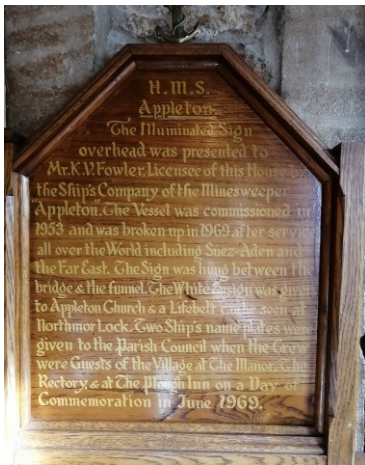 H.M.S.
Appleton.
The Illuminated Sign
overhead was presented to
Mr. K.V. Fowler, Licensee of this House
the Ship's Company of the Minesweeper
"Appleton". The Vessel was commissioned in
1953 and was broken up in 1969, after service
all over the World including Suez-Aden and
the Far East. The Sign was hung between the
bridge & the funnel. The White Ensign was given
to Appleton Church & a Lifebelt can be seen at
Northmor Lock. Two Ship's name plates were
given to the Parish Council when the Crew
were Guests of the Village at The Manor, The
Rectory, & at The Plough Inn on a Day of
Commemoration in June 1969.